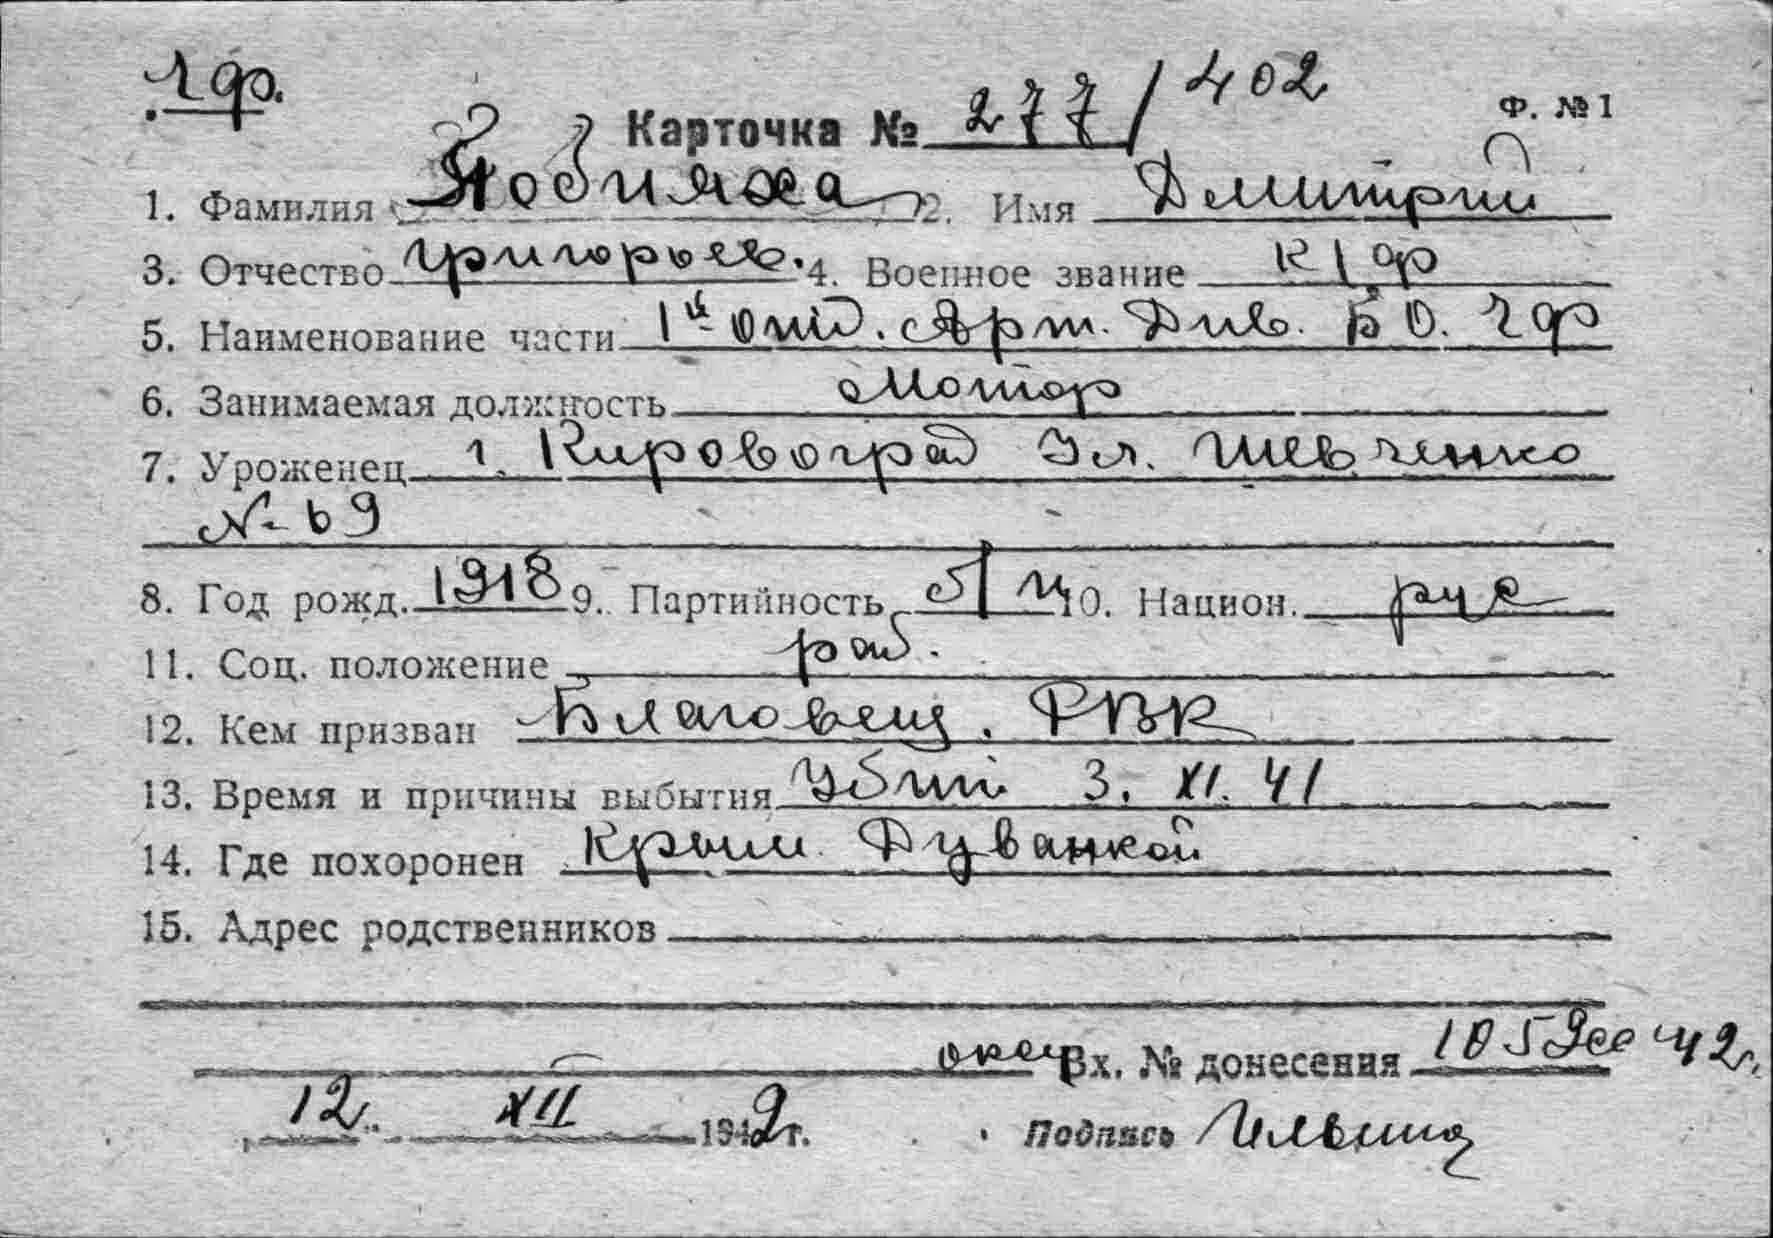 ЧФ.
Карточка № 277/402 Ф. № 1
1. Фамилия Побияха 2. Имя Дмитрий
3. Отчество Григорьев. 4. Военное звание к/ф
5. Наименование части 1й отд. Арт. Див. БО. ЧФ
6. Занимаемая должность Мотор
7. Уроженец г. Кировоград Ул. Шевченко
№ 69
8. Год рожд. 1918 9. Партийность б/п 10. Национ. рус
11. Соц. положение раб.
12. Кем призван Благовещ. РВК
13. Время и причины выбытия Убит 3. XI. 41
14. Где похоронен Крым Дуванкой
15. Адрес родственников
Вх. № донесения 1059сс 42г.
12. XII 1942г. Подпись Ильина